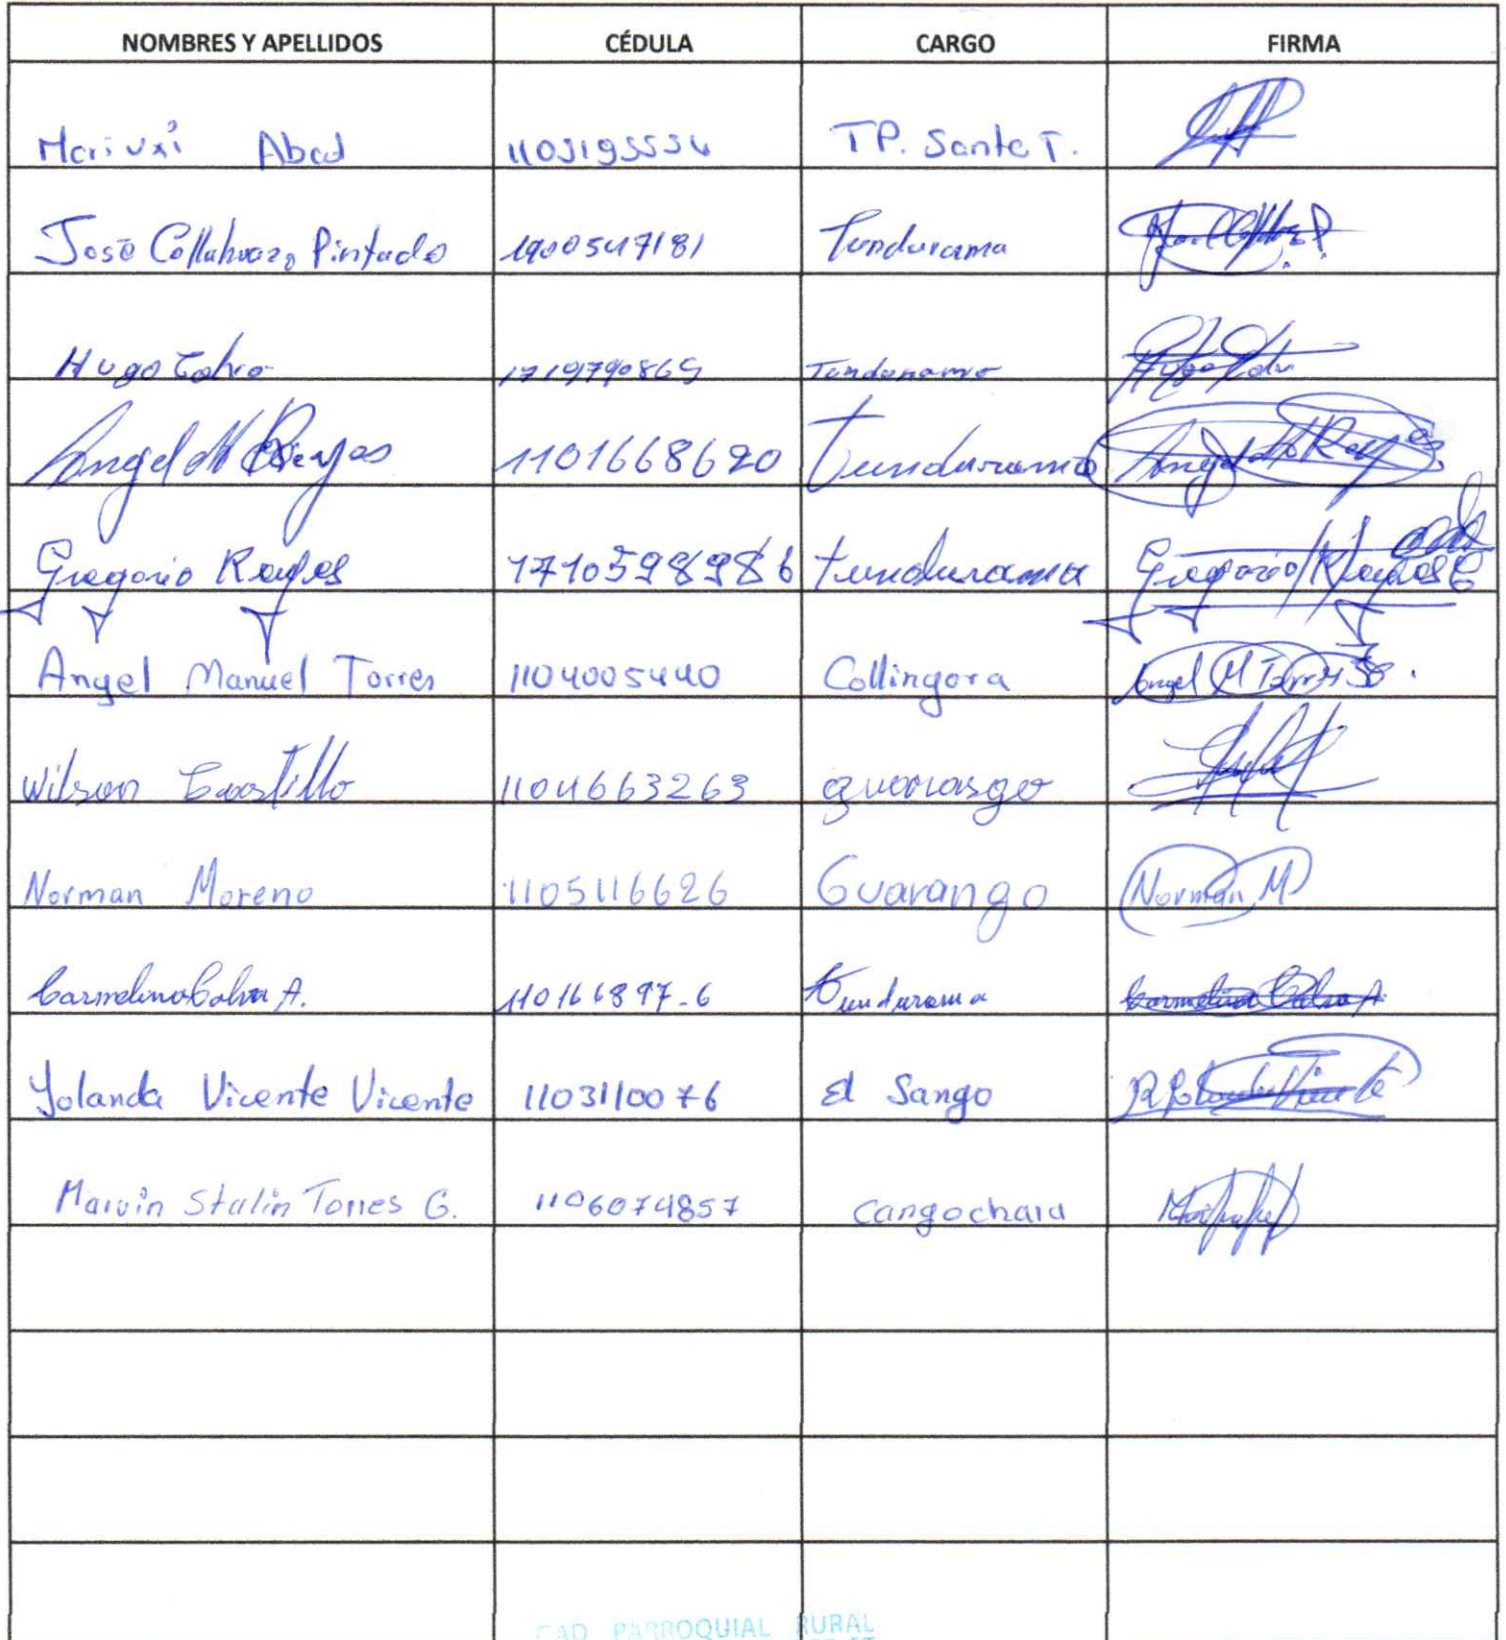 NOMBRES Y APELLIDOS CÉDULA CARGO FIRMA
Marivxi Abad 1103195534 TP. Santa T.
José Collahuazo Pintado 1900547181 Tundurama
Hugo Calva 1719790869 Tundurama
Angel M Reyes 1101668620 Tundurama Angel M Reyes
Gregorio Reyes 1710598986 tundurama Gregorio Reyes
Angel Manuel Torres 1104005440 Collingora Angel M Torres
Wilson Castillo 1104663263 guarango
Norman Moreno 1105116626 Guarango Norman M
Carmelina Calva A. 110166897-6 tundurama Carmelina Calva A.
Yolanda Vicente Vicente 1103110076 El Sango
Marvin Stalin Torres G. 1106074857 Cangochara
GAD PARROQUIAL RURAL